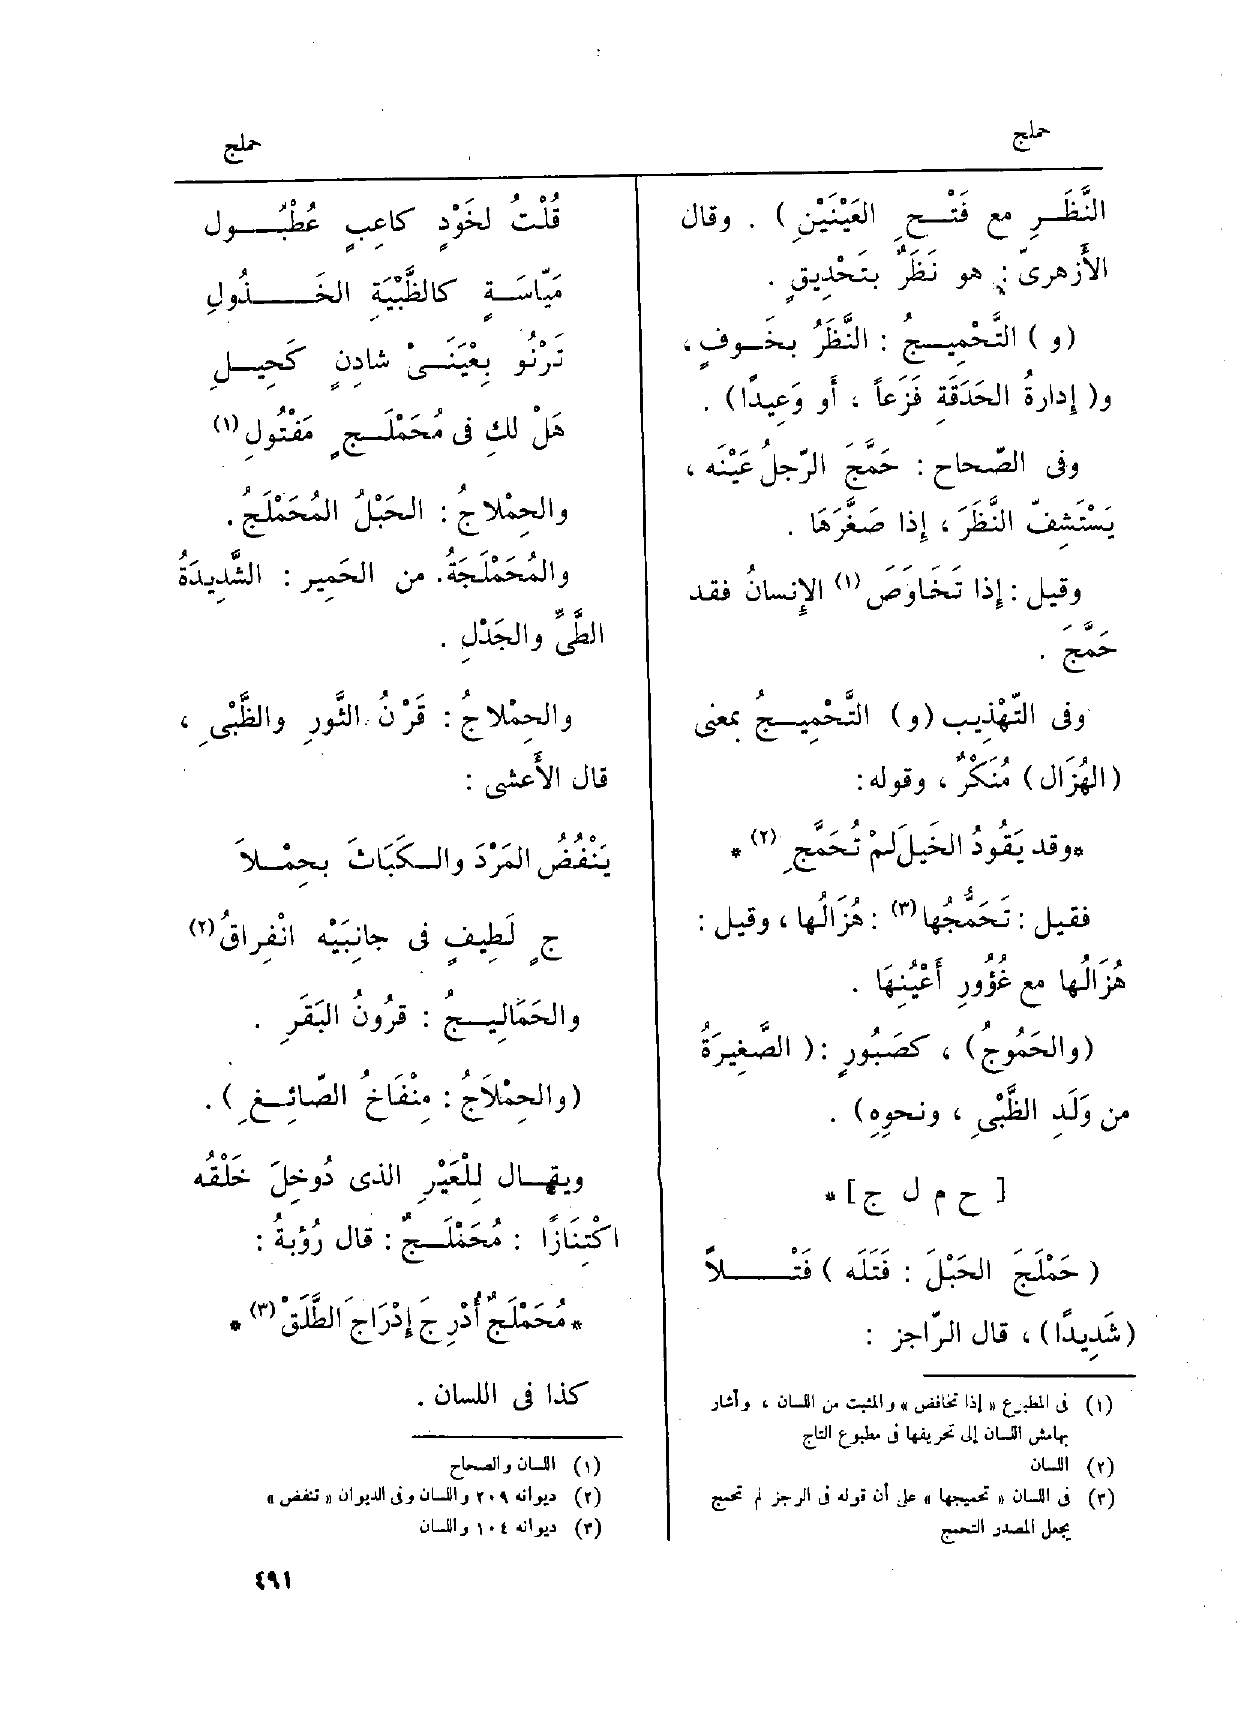 حملج
حملج
النَّظَـرِ مع فَتْـحِ العَيْنَيْنِ ) . وقال
الأَزهرىّ : هو نَظَرٌ بتَحْدِيقٍ .
(و) التَّحْمِيـجُ : النَّظَرُ بخَـوفٍ ،
و( إدارةُ الحَدَقَةِ فَزَعاً ، أو وَعِيدًا) .
وفى الصّحاح : حَمَّجَ الرّجلُ عَيْنَه ،
يَسْتَشِفّ النَّظَرَ ، إذا صَغَّرَهَا .
وقيل : إذا تَخَاوَصَ (١) الإِنسانُ فقد
حَمَّجَ .
وفى التّهْذِيب (و) التَّحْمِيـجُ بمعنى
(الهُزَال) مُنْكَرٌ ، وقوله :
*وقد يَقُودُ الخَيلَ لمْ تُحَمَّجِ (٢) *
فقيل : تَحَمُّجُها (٣) : هُزَالُها ، وقيل :
هُزَالُها مع غُؤُورِ أَعْيُنِهَا .
(والحَمُوجُ) ، كصَبُورٍ : ( الصَّغِيرَةُ
من وَلَدِ الظَّبْىِ ، ونحوِهِ) .
[ ح م ل ج ] *
( حَمْلَجَ الحَبْلَ : فَتَلَه ) فَتْـــلاً
(شَدِيدًا) ، قال الرّاجز :
(١) فى المطبوع « إذا تخافض » والمثبت من اللسان ، وأشار
بهامش اللسان إلى تحريفها فى مطبوع التاج
(٢) اللسان
(٣) فى اللسان « تحميجها » على أن قوله فى الرجز لم تحمج
يجعل المصدر التحمج
قُلْتُ لخَوْدٍ كاعِبٍ عُطْبُــول
مَيّاسَـةٍ كالظَّبْيَةِ الخَـــذُولِ
تَرْنُو بِعَيْنَـىْ شادِنٍ كَحِيـلِ
هَلْ لكِ فى مُحَمْلَـجٍ مَفْتُولِ (١)
والحِمْلاجُ : الحَبْلُ المُحَمْلَجُ .
والمُحَمْلَجَةُ . من الحَمِير : الشَّدِيدَةُ
الطَّىِّ والجَدْلِ .
والحِمْلاجُ : قَرْنُ الثَّورِ والظَّبْىِ ،
قال الأَعشى :
يَنْفُضُ المَرْدَ والـكَبَاثَ بحِمْـلاَ
جٍ لَطِيفٍ فى جانِبَيْه انْفِراقُ (٢)
والحَمَالِيـجُ : قرُونُ البَقَرِ .
(والحِمْلاَجُ : مِنْفَاخُ الصّائِـغِ ) .
ويقـال لِلْعَيْرِ الذى دُوخِلَ خَلْقُه
اكْتِنَازًا : مُحَمْلَـجٌ : قال رُؤبةُ :
*مُحَمْلَجٌ أُدْرِجَ إِدْرَاجَ الطَّلَقْ (٣) *
كذا فى اللسان .
(١) اللسان والصحاح
(٢) ديوانه ٢٠٩ واللسان وفى الديوان « تنفض »
(٣) ديوانه ١٠٤ واللسان
٤٩١